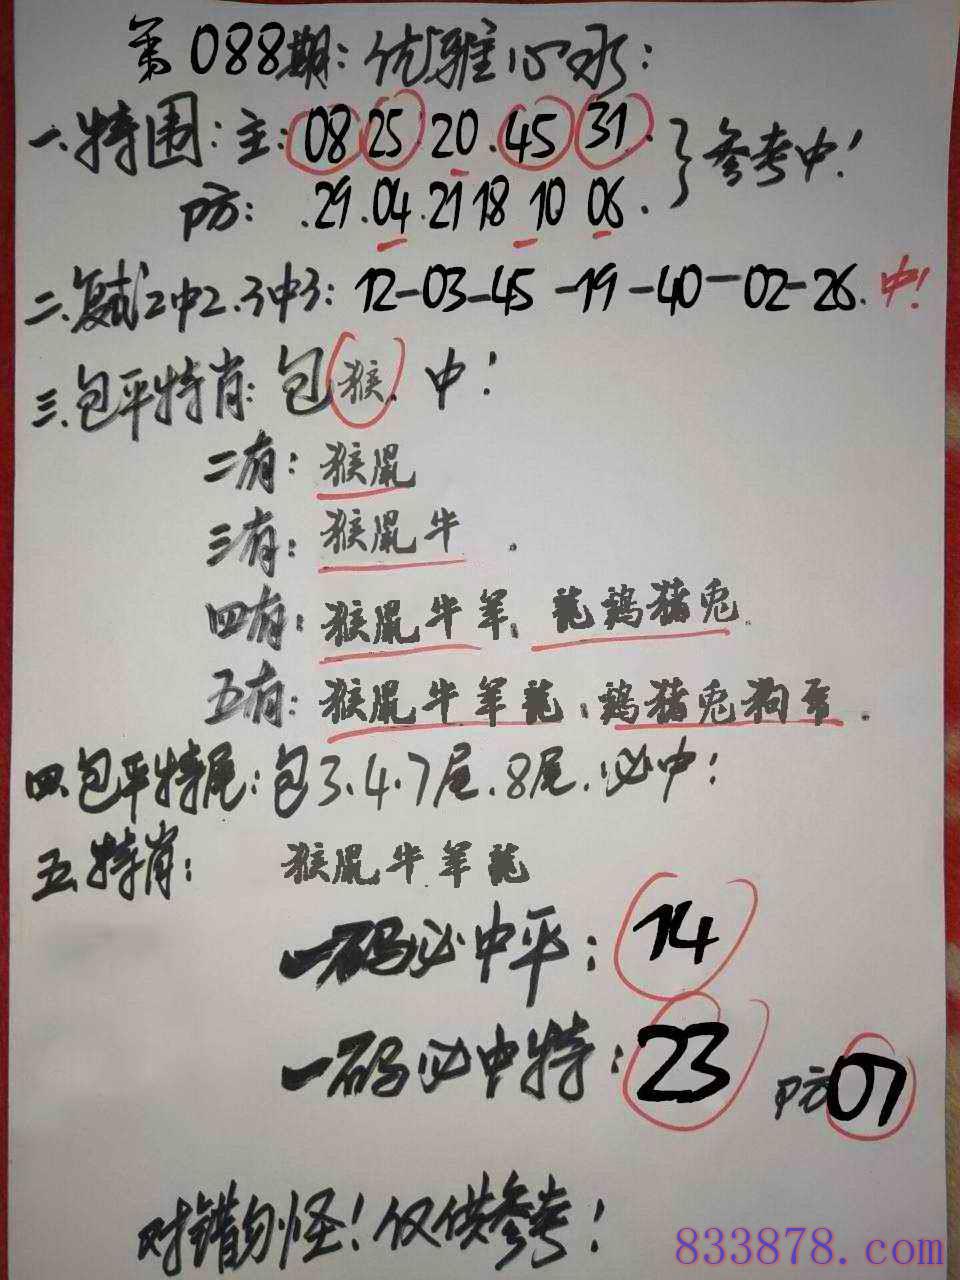 第088期:优雅心水:
一.特围:主:08 25 20.45 31.}参考中!
防:.29.04.21 18 10 06.
二.复式2中2.3中3:12-03-45-19-40-02-26.中!
三.包平特肖:包猴.中!
二有:猴鼠
三有:猴鼠牛.
四有:猴鼠牛羊.龍鷄猪兎.
五有:猴鼠牛羊龍;鷄猪兎狗.
四.包平特尾:包3.4.7尾.8尾.必中!
五.特肖:猴鼠牛羊龍
一码必中平:14
一码必中特:23 防07
对错勿怪!仅供参考!
833878.com